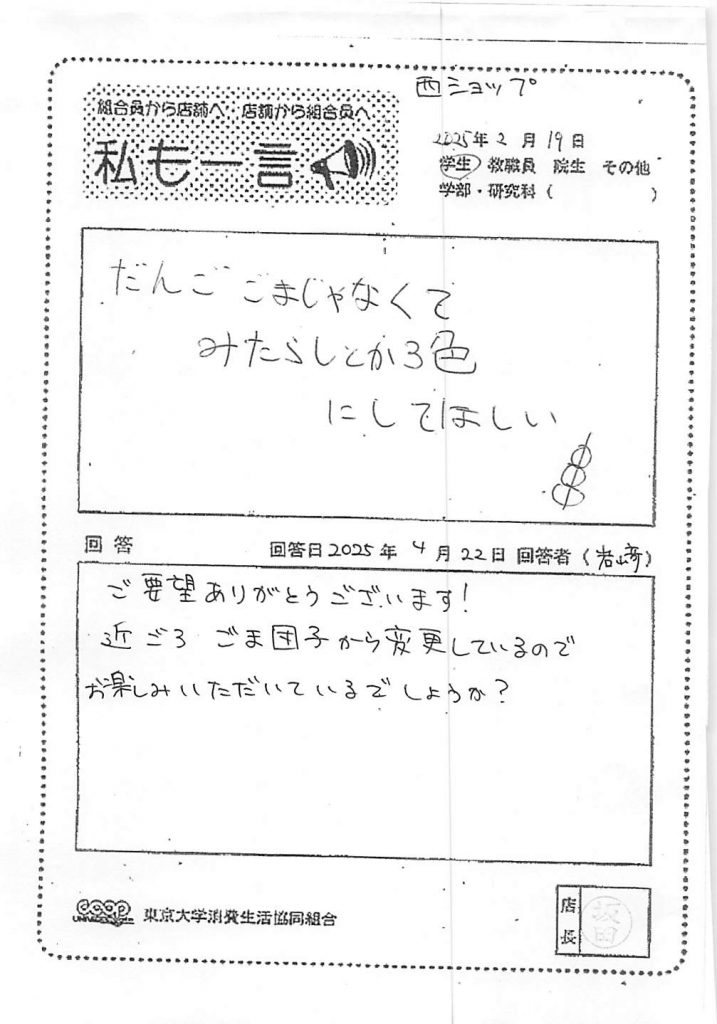 西ショップ
組合員から店舗へ・店舗から組合員へ
私も一言
2025年2月19日
学生 教職員 院生 その他
学部・研究科（ ）
だんご ごまじゃなくて
みたらしとか3色
にしてほしい
回答 回答日2025年4月22日 回答者（岩崎）
ご要望ありがとうございます！
近ごろ ごま団子から変更しているので
お楽しみいただいているでしょうか？
coop 東京大学消費生活協同組合
店長 坂田